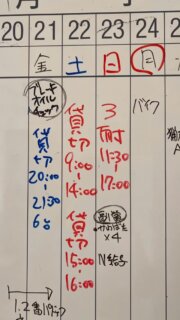 20 21 22 23 24
金 土 日 月
ブレーキ
オイル
チェック
貸
切
20:00
~
21:30
6名
貸
切
9:00
~
14:00
貸
切
15:00
~
16:00
3
耐
11:30
~
17:00
×4
N給
バイク